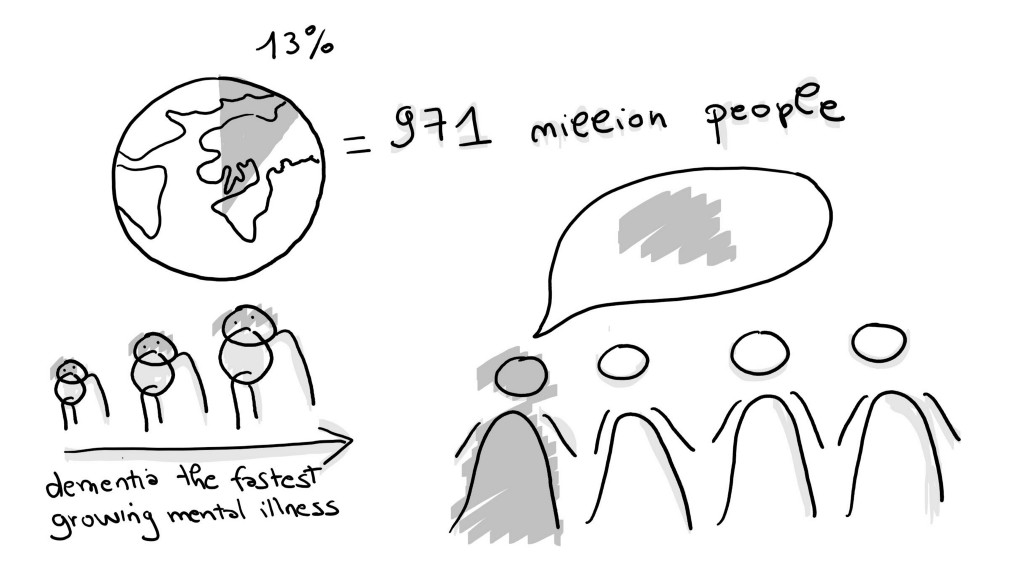 13%
= 971 million people
dementia the fastest
growing mental illness